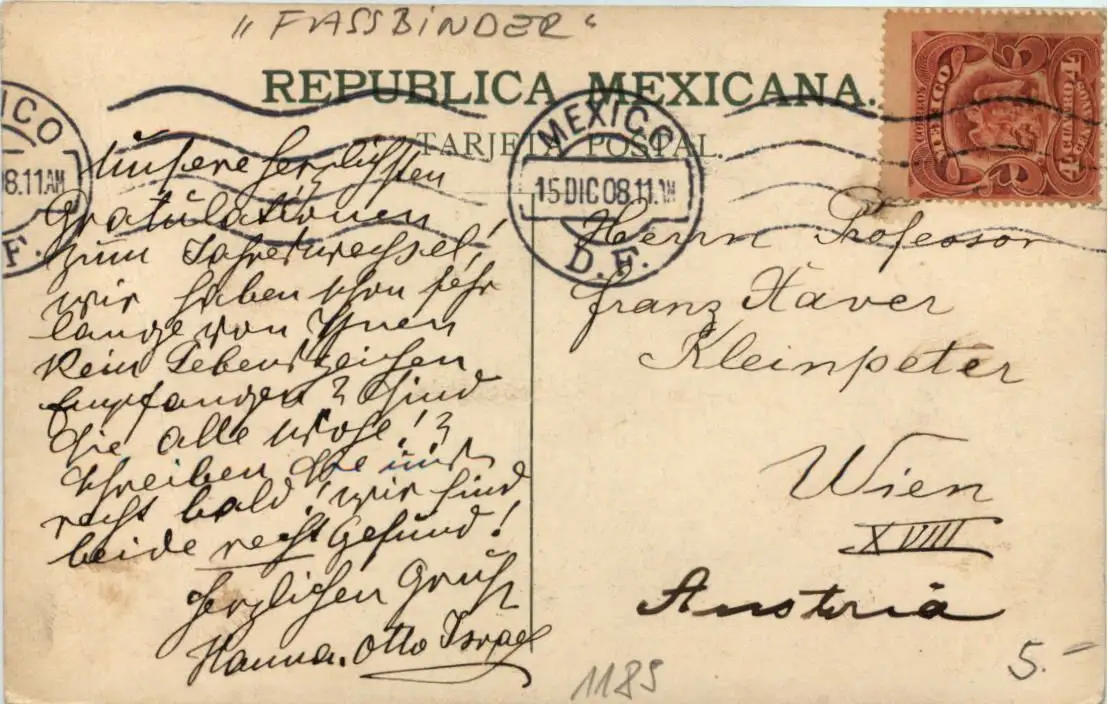 „FASSBINDER“
REPUBLICA MEXICANA.
TARJETA POSTAL.
MEXICO
15 DIC 08.11 AM
D.F.
ICO
8.11 AM
F.
CORREOS
DE MEXICO
4 CUATRO 4
CENTAVOS
Unsere herzlichsten
Gratulationen
zum Jahreswechsel!
wir haben schon sehr
lange von Ihnen
kein Lebenszeichen
Empfangen? Sind
Sie alle wohl!?
Schreiben Sie uns
recht bald! wir sind
beide recht Gesund!
herzlichen Gruß
Hanna. Otto Israel
Herrn Professor
Franz Xaver
Kleinpeter
Wien
XVIII
Austria
1189
5.-